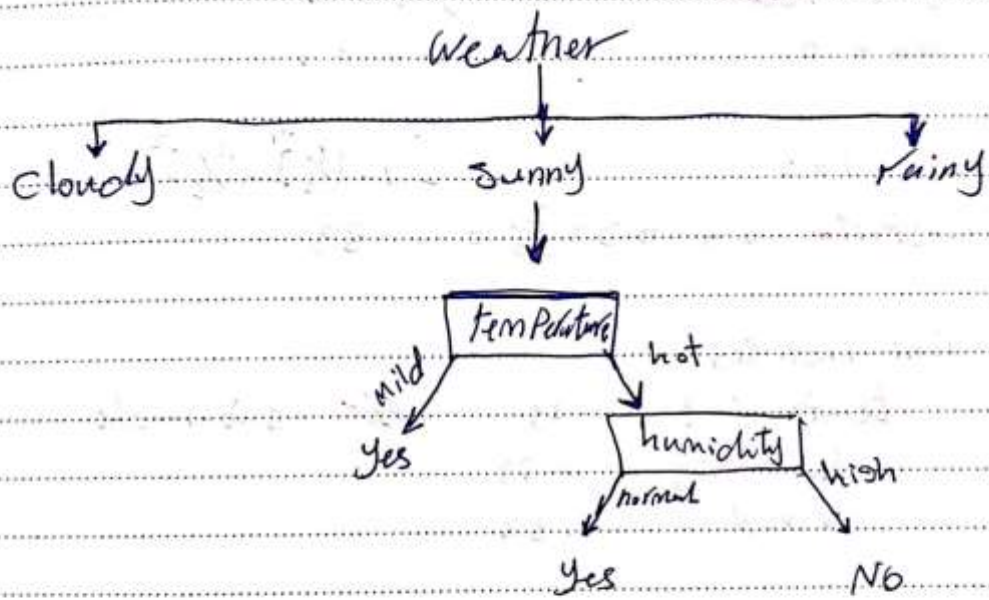 Weather
Cloudy Sunny rainy
temperature
Mild hot
Yes humidity
normal high
Yes No